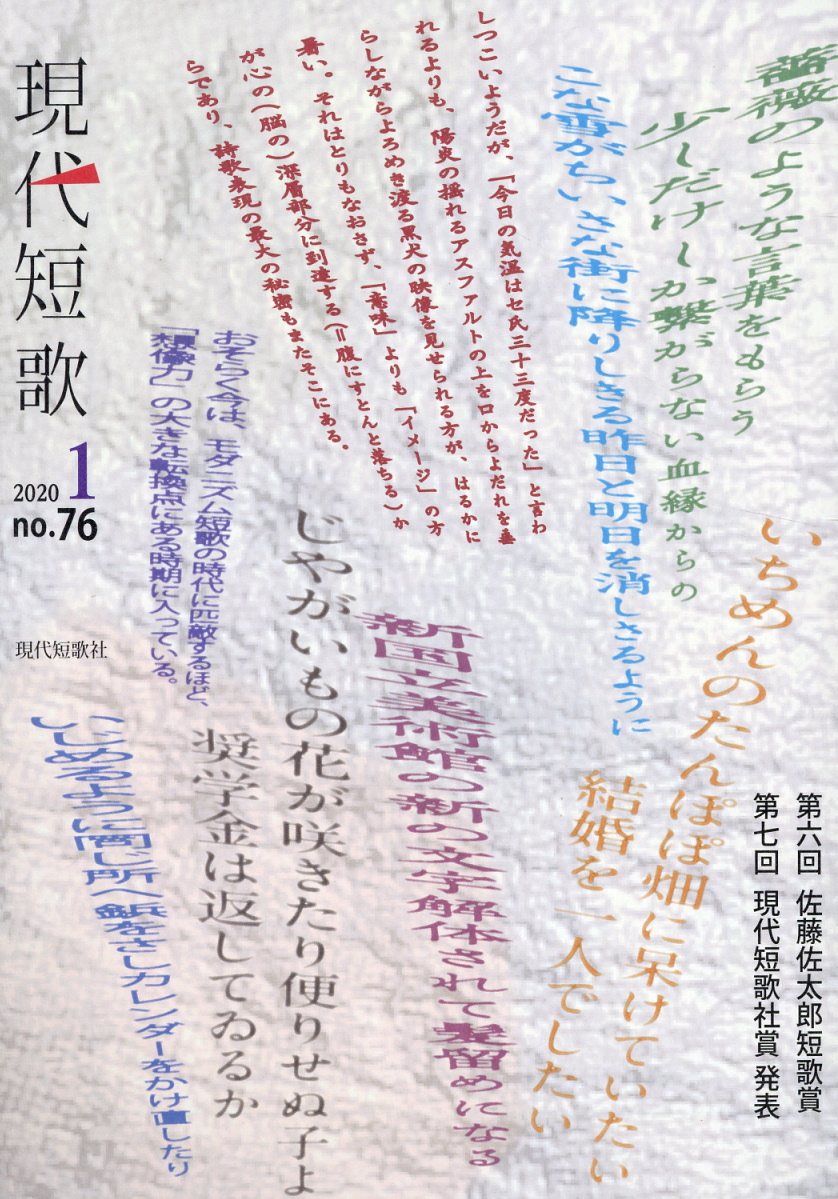 現代短歌
2020 1
no.76
現代短歌社
薔薇のような言葉をもらう
少しだけしか繋がらない血縁からの
こな雪がちいさな街に降りしきる昨日と明日を消しさるように
しつこいようだが、「今日の気温はセ氏三十三度だった」と言わ
れるよりも、陽炎の揺れるアスファルトの上を口からよだれを垂
らしながらよろめき渡る黒犬の映像を見せられる方が、はるかに
暑い。それはとりもなおさず、「意味」よりも「イメージ」の方
が心の(脳の)深層部分に到達する(=腹にすとんと落ちる)か
らであり、詩歌表現の最大の秘密もまたそこにある。
おそらく今は、モダニズム短歌の時代に匹敵するほど、
「想像力」の大きな転換点にある時期に入っている。
いちめんのたんぽぽ畑に呆けていたい
結婚を一人でしたい
新国立美術館の新の文字解体されて髪留めになる
じやがいもの花が咲きたり便りせぬ子よ
奨学金は返してゐるか
いじめるように同じ所へ鋲をさしカレンダーをかけ直したり
第六回 佐藤佐太郎短歌賞
第七回 現代短歌社賞 発表